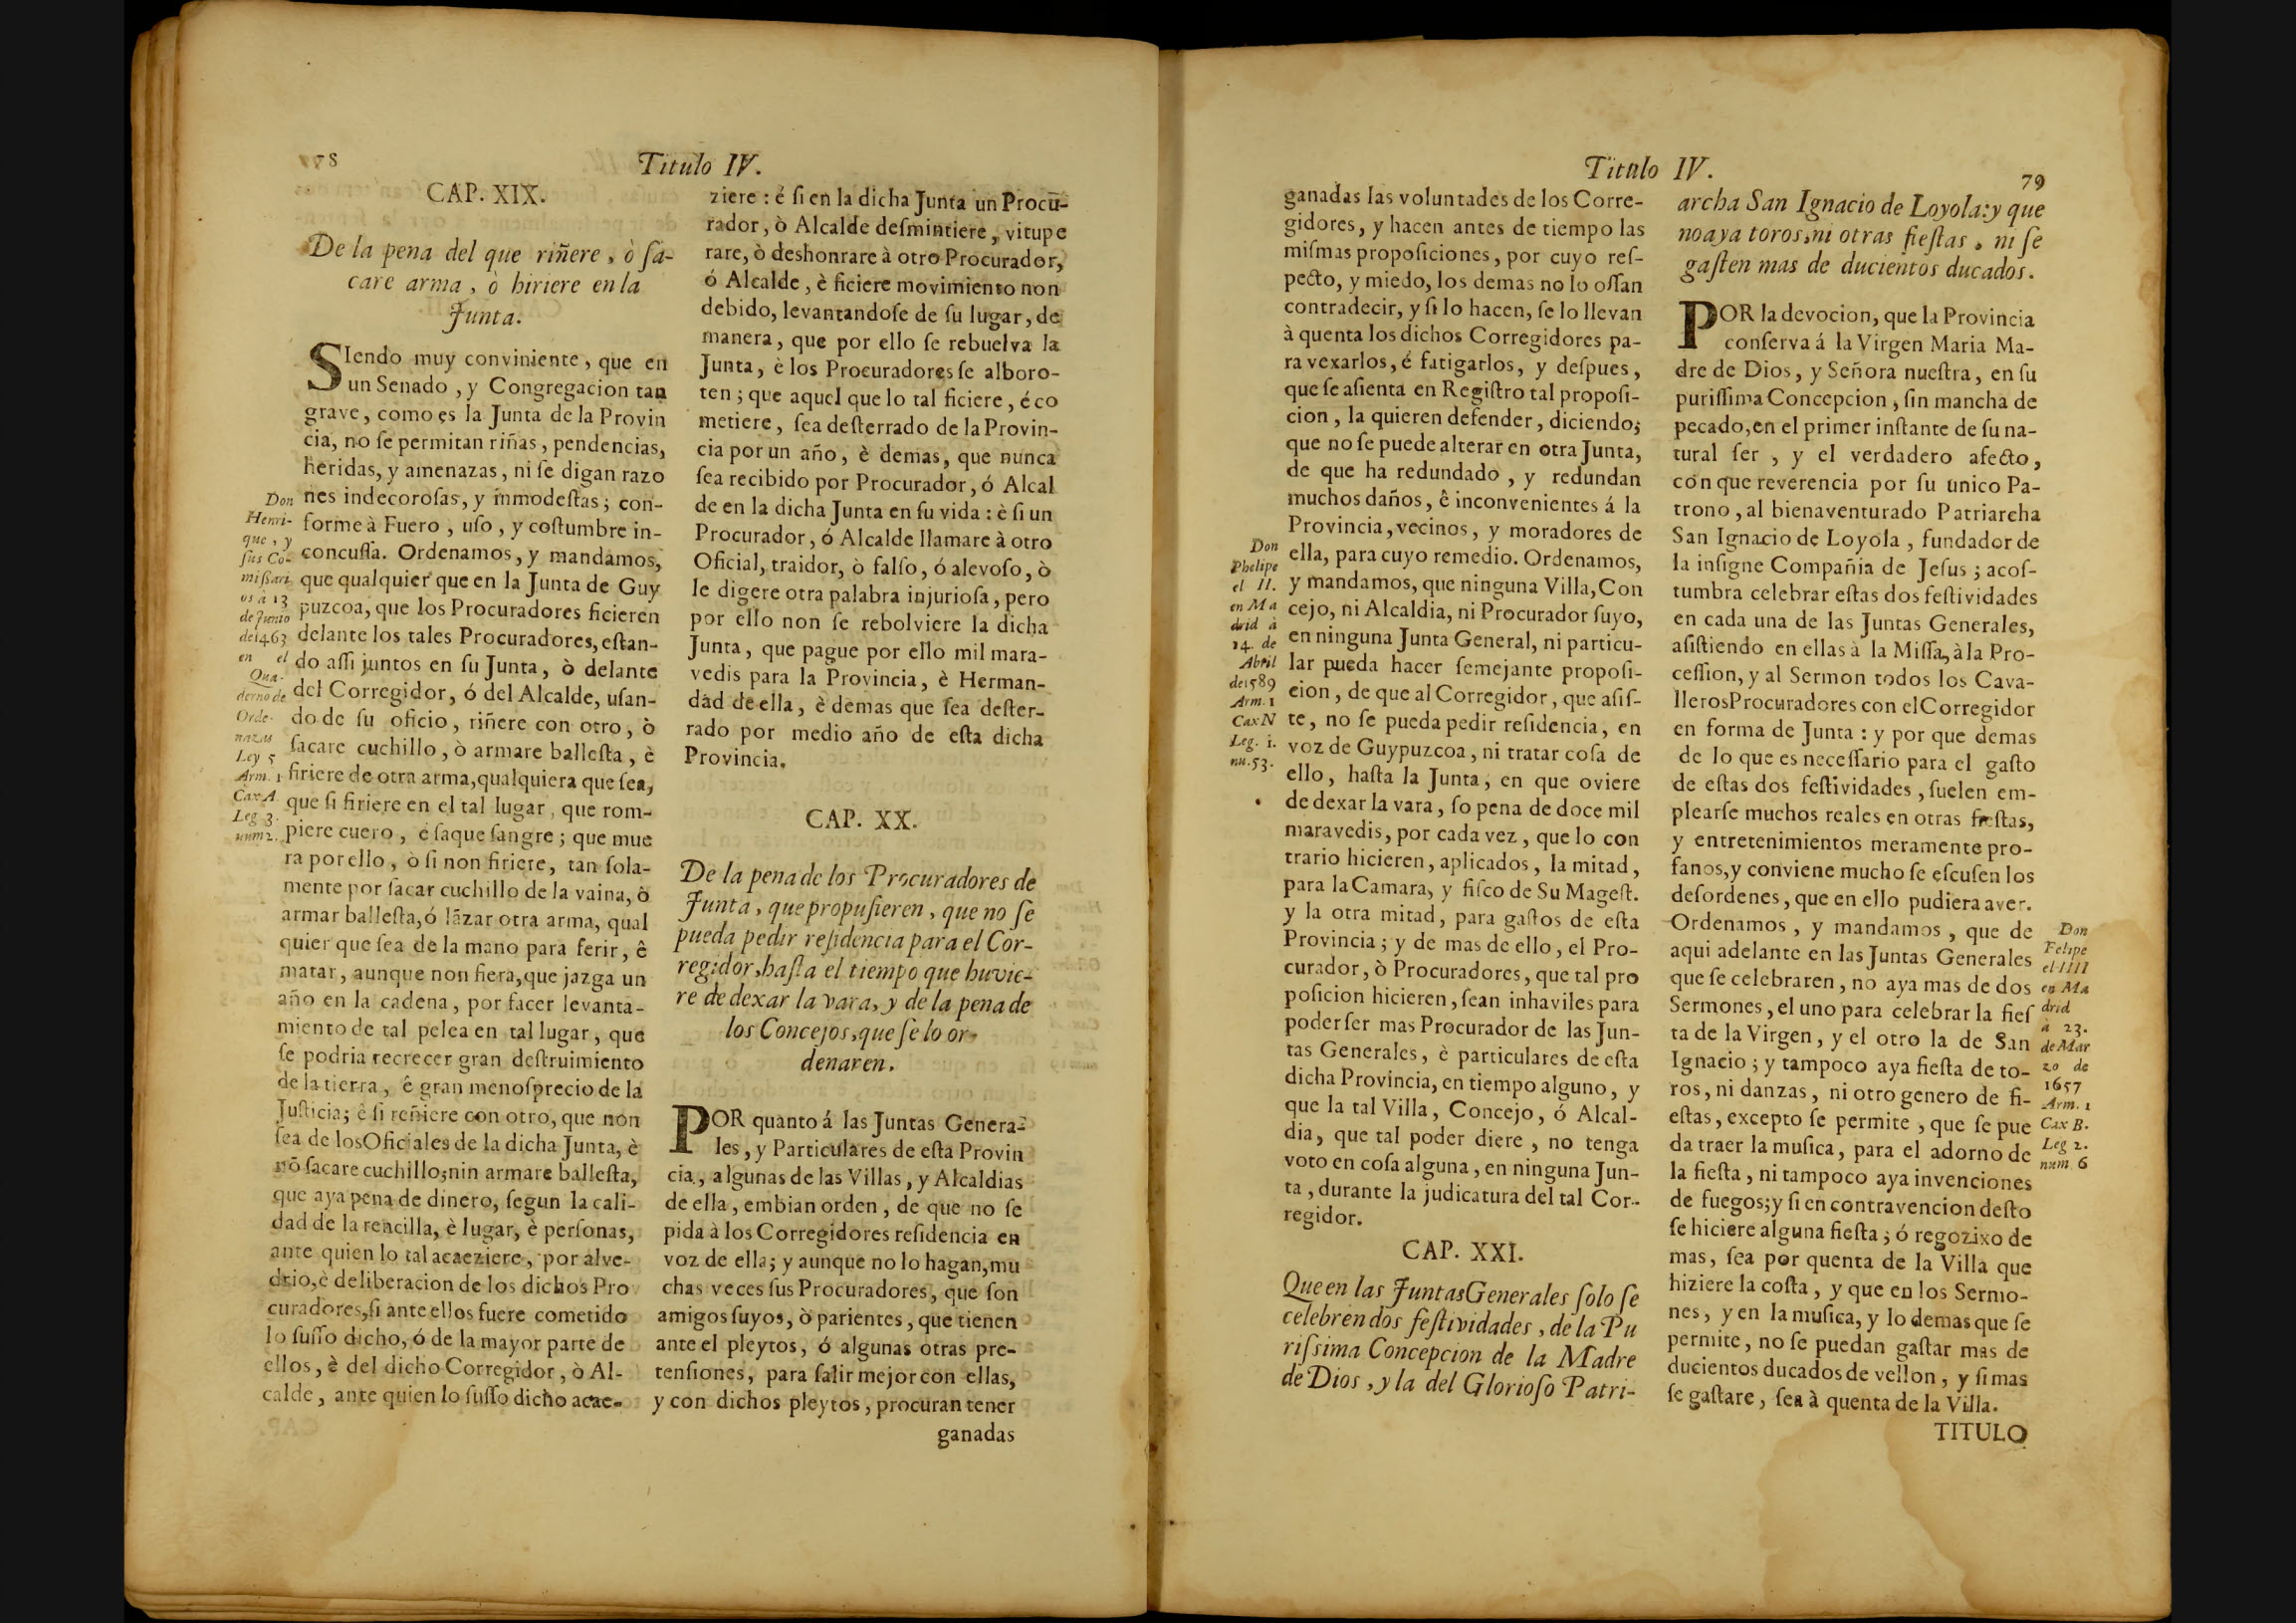 78
Titulo IV.
CAP. XIX.
De la pena del que riñere, ò sa-
care arma, ò hiriere en la
Junta.
SIendo muy conviniente, que en
un Senado, y Congregacion tan
grave, como es la Junta de la Provin
cia, no se permitan riñas, pendencias,
heridas, y amenazas, ni se digan razo
nes indecorosas, y inmodestas; con-
forme à Fuero, uso, y costumbre in-
concussa. Ordenamos, y mandamos,
que qualquier que en la Junta de Guy
puzcoa, que los Procuradores ficieren
delante los tales Procuradores, estan-
do assi juntos en su Junta, ò delante
del Corregidor, ó del Alcalde, usan-
do de su oficio, riñere con otro, ò
sacare cuchillo, ò armare ballesta, è
firiere de otra arma, qualquiera que sea,
que si firiere en el tal lugar, que rom-
piere cuero, é saque sangre; que mue
ra por ello, ò si non firiere, tan sola-
mente por sacar cuchillo de la vaina, ò
armar ballesta, ó lãzar otra arma, qual
quier que sea de la mano para ferir, ê
matar, aunque non fiera, que jazga un
año en la cadena, por facer levanta-
miento de tal pelea en tal lugar, que
se podria recrecer gran destruimiento
de la tierra, ê gran menosprecio de la
Justicia; è si reñiere con otro, que non
sea de los Oficiales de la dicha Junta, è
nõ sacare cuchillo; nin armare ballesta,
que aya pena de dinero, segun la cali-
dad de la rencilla, è lugar, è personas,
ante quien lo tal acaeziere, por alve-
drio, è deliberacion de los dichos Pro
curadores, si ante ellos fuere cometido
lo susso dicho, ó de la mayor parte de
ellos, è del dicho Corregidor, ò Al-
calde, ante quien lo susso dicho acae-
Don
Henri-
que, y
sus Co-
missari
os à 13
de Junio
de 1463
en el
Qua-
derno de
Orde-
nazas
Ley 5
Arm. 1
Cax A
Leg 3.
num 2.
ziere: é si en la dicha Junta un Procu-
rador, ò Alcalde desmintiere, vitupe
rare, ò deshonrare à otro Procurador,
ó Alcalde, è ficiere movimiento non
debido, levantandose de su lugar, de
manera, que por ello se rebuelva la
Junta, è los Procuradores se alboro-
ten; que aquel que lo tal ficiere, é co
metiere, sea desterrado de la Provin-
cia por un año, è demas, que nunca
sea recibido por Procurador, ó Alcal
de en la dicha Junta en su vida: è si un
Procurador, ó Alcalde llamare à otro
Oficial, traidor, ò falso, ó alevoso, ò
le digere otra palabra injuriosa, pero
por ello non se rebolviere la dicha
Junta, que pague por ello mil mara-
vedis para la Provincia, è Herman-
dad de ella, è demas que sea dester-
rado por medio año de esta dicha
Provincia.
CAP. XX.
De la pena de los Procuradores de
Junta, que propusieren, que no se
pueda pedir residencia para el Cor-
regidor, hasta el tiempo que huvie-
re de dexar la vara, y de la pena de
los Concejos, que se lo or-
denaren.
POR quanto á las Juntas Genera-
les, y Particulares de esta Provin
cia, algunas de las Villas, y Alcaldias
de ella, embian orden, de que no se
pida à los Corregidores residencia en
voz de ella; y aunque no lo hagan, mu
chas veces sus Procuradores, que son
amigos suyos, ò parientes, que tienen
ante el pleytos, ó algunas otras pre-
tensiones, para salir mejor con ellas,
y con dichos pleytos, procuran tener
ganadas
Titulo IV.
79
ganadas las voluntades de los Corre-
gidores, y hacen antes de tiempo las
mismas proposiciones, por cuyo res-
pecto, y miedo, los demas no lo ossan
contradecir, y si lo hacen, se lo llevan
à quenta los dichos Corregidores pa-
ra vexarlos, é fatigarlos, y despues,
que se asienta en Registro tal proposi-
cion, la quieren defender, diciendo;
que no se puede alterar en otra Junta,
de que ha redundado, y redundan
muchos daños, ê inconvenientes á la
Provincia, vecinos, y moradores de
ella, para cuyo remedio. Ordenamos,
y mandamos, que ninguna Villa, Con
cejo, ni Alcaldia, ni Procurador suyo,
en ninguna Junta General, ni particu-
lar pueda hacer semejante proposi-
cion, de que al Corregidor, que asis-
te, no se pueda pedir residencia, en
voz de Guypuzcoa, ni tratar cosa de
ello, hasta la Junta, en que oviere
de dexar la vara, so pena de doce mil
maravedis, por cada vez, que lo con
trario hicieren, aplicados, la mitad,
para la Camara, y fisco de Su Magest.
y la otra mitad, para gastos de esta
Provincia; y de mas de ello, el Pro-
curador, ò Procuradores, que tal pro
posicion hicieren, sean inhaviles para
poder ser mas Procurador de las Jun-
tas Generales, è particulares de esta
dicha Provincia, en tiempo alguno, y
que la tal Villa, Concejo, ó Alcal-
dia, que tal poder diere, no tenga
voto en cosa alguna, en ninguna Jun-
ta, durante la judicatura del tal Cor-
regidor.
Don
Phelipe
el II.
en Ma
drid à
14 de
Abril
de 1589
Arm. 1
Cax N
Leg. 1.
nu. 53.
CAP. XXI.
Que en las Juntas Generales solo se
celebren dos festividades, de la Pu
rissima Concepcion de la Madre
de Dios, y la del Glorioso Patri-
archa San Ignacio de Loyola: y que
no aya toros, ni otras fiestas, ni se
gasten mas de ducientos ducados.
POR la devocion, que la Provincia
conserva á la Virgen Maria Ma-
dre de Dios, y Señora nuestra, en su
purissima Concepcion, sin mancha de
pecado, en el primer instante de su na-
tural ser, y el verdadero afecto,
con que reverencia por su unico Pa-
trono, al bienaventurado Patriarcha
San Ignacio de Loyola, fundador de
la insigne Compañia de Jesus; acos-
tumbra celebrar estas dos festividades
en cada una de las Juntas Generales,
asistiendo en ellas à la Missa, à la Pro-
cession, y al Sermon todos los Cava-
lleros Procuradores con el Corregidor
en forma de Junta: y por que demas
de lo que es necessario para el gasto
de estas dos festividades, suelen em-
plearse muchos reales en otras fiestas,
y entretenimientos meramente pro-
fanos, y conviene mucho se escusen los
desordenes, que en ello pudiera aver.
Ordenamos, y mandamos, que de
aqui adelante en las Juntas Generales
que se celebraren, no aya mas de dos
Sermones, el uno para celebrar la fies
ta de la Virgen, y el otro la de San
Ignacio; y tampoco aya fiesta de to-
ros, ni danzas, ni otro genero de fi-
estas, excepto se permite, que se pue
da traer la musica, para el adorno de
la fiesta, ni tampoco aya invenciones
de fuegos; y si en contravencion desto
se hiciere alguna fiesta; ó regozixo de
mas, sea por quenta de la Villa que
hiziere la costa, y que en los Sermo-
nes, y en la musica, y lo demas que se
permite, no se puedan gastar mas de
ducientos ducados de vellon, y si mas
se gastare, sea à quenta de la Villa.
Don
Felipe
el IIII
en Ma
drid
à 23.
de Mar
zo de
1657
Arm. 1
Cax B.
Leg 2.
num. 6
TITULO